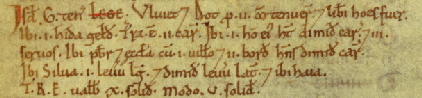 Isd̄. G. ten̄. LEGE. Vluiet 7 Dot p. ii. m̄ tenuer̄. 7 libi hoēs fuer̄.
Ibi. i. hida geld̄. Tr̄a. ē. ii. car̄. Ibi. i. hō ej' ht̄ dimid̄ car̄. 7 iii.
seruos. Ibi pb̄r 7 eccl̄a cū. i. uillo 7 ii. bord̄ hn̄s dimid̄ car̄.
Ibi Silua. i. leuū lḡ. 7 dimid̄ leuū lat̄. 7 ibi haia.
T. R. E. ualb̄ x. solid̄. Modo. v. solid̄.